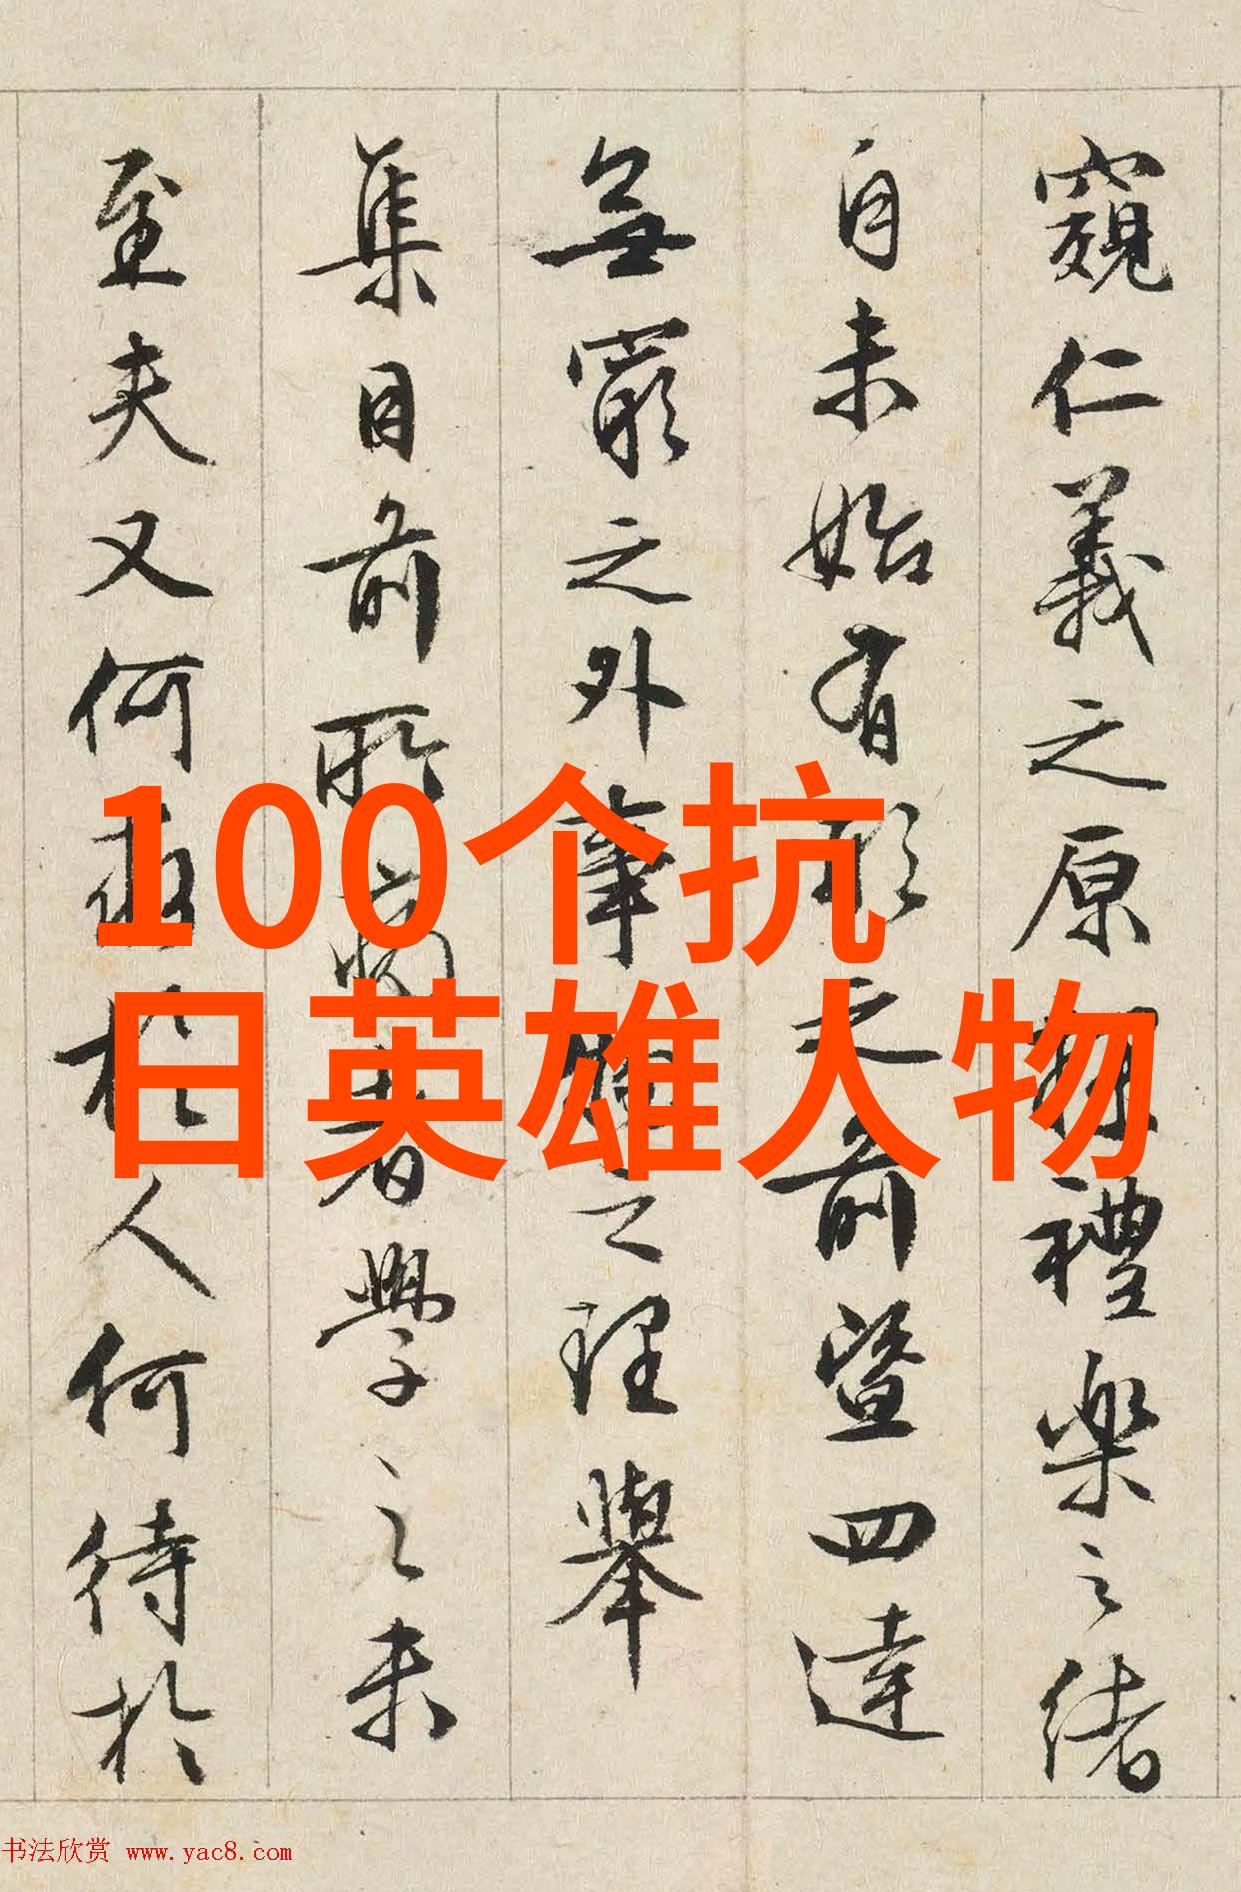 窺仁義之原禮樂之緒
自未始有之前暨四達
無窮之外事之理舉
集目前所者學之未
至夫又何於人何待於
100个抗
日英雄人物
书法欣赏 www.yac8.com